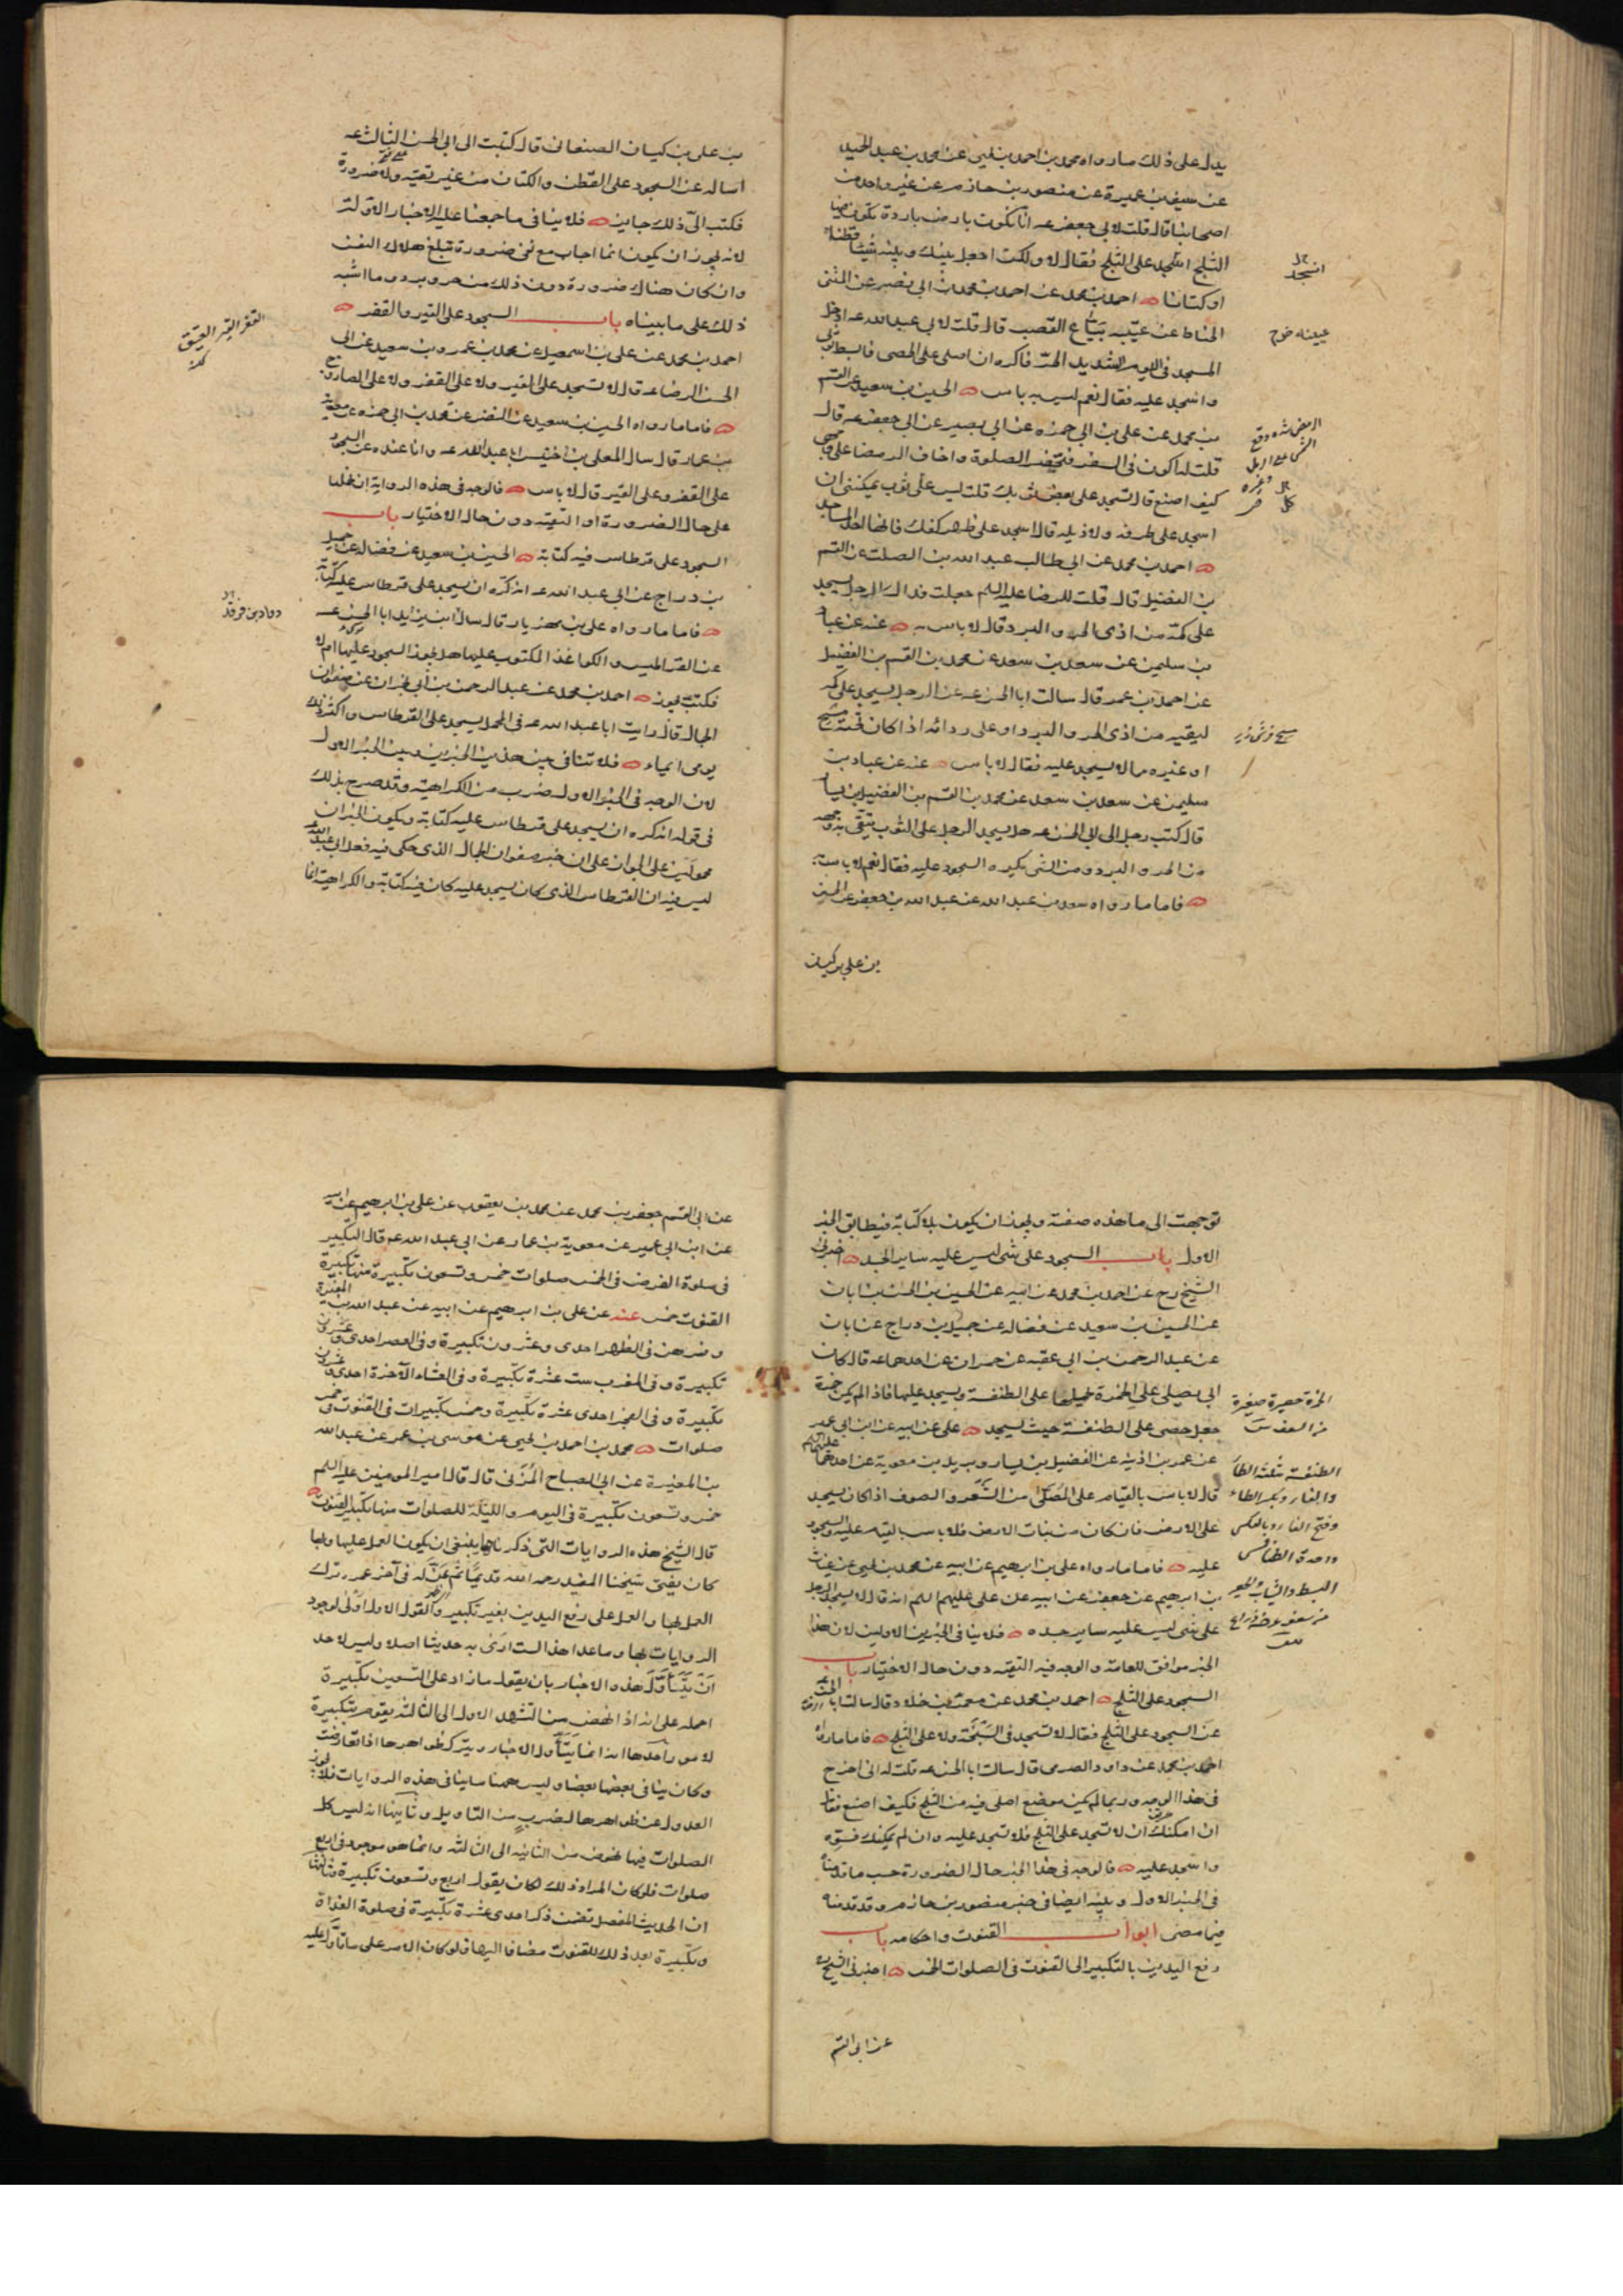 يدل على ذلك ما رواه محمد بن احمد بن يحيى عن محمد بن عبد الحميد
عن سيف بن عميرة عن منصور بن حازم عن غير واحد من
اصحابنا قال قلت لابي جعفر عه انا نكون بارض باردة يكون فيها
الثلج انسجد على الثلج فقال لا ولكن اجعل بينك وبينه شيئا قطنا
او كتانا احمد بن محمد عن احمد بن محمد بن ابي نصر عن المثنى
الحناط عن عيينه بياع القصب قال قلت لابي عبد الله عه ادخل
المسجد في اليوم الشديد الحر فاكره ان اصلي على الحصى فابسط ثوبي
واسجد عليه فقال نعم ليس به باس الحسين بن سعيد عن القسم
بن محمد عن علي بن ابي حمزه عن ابي بصير عن ابي جعفر عه قال
قلت له اكون في السفر فتحضر الصلوة واخاف الرمضا على وجهي
كيف اصنع قال تسجد على بعض ثوبك قلت ليس علي ثوب يمكنني ان
اسجد على طرفه ولا ذيله قال اسجد على ظهر كفك فانها احد المساجد
احمد بن محمد عن ابي طالب عبد الله بن الصلت عن القسم
بن الفضيل قال قلت للرضا عليه السلم جعلت فداك الرجل يسجد
على كمه من اذى الحر والبرد قال لا باس به عنه عن عباد
بن سليمن عن سعد بن سعد عن محمد بن القسم بن الفضيل
عن احمد بن عمر قال سالت ابا الحسن عه عن الرجل يسجد على كم
ليقيه من اذى الحر والبرد او على ردائه اذا كان تحته مسح
او غيره مما لا يسجد عليه فقال لا باس عنه عن عباد بن
سليمن عن سعد بن سعد عن محمد بن القسم بن الفضيل بن يسار
قال كتب رجل الى ابي الحسن عه هل يسجد الرجل على الثوب يتقي به وجهه
من الحر والبرد ومن الشي يكره السجود عليه فقال نعم لا باس به
فاما ما رواه سعد بن عبد الله عن عبد الله بن جعفر عن الحسين
بن علي بن كيسان
بن علي بن كيسان الصنعاني قال كتبت الى ابي الحسن الثالث عه
اساله عن السجود على القطن والكتان من غير تقيه ولا ضرورة
فكتب الي ذلك جايز فلا ينافي ما جمعنا عليه الاخبار الاولة
لانه يجوز ان يكون انما اجاب مع نفي ضرورة تبلغ هلاك النفس
وان كان هناك ضرورة دون ذلك من حر وبرد وما اشبه
ذلك على ما بيناه باب السجود على القير والقفر
احمد بن محمد عن علي بن اسمعيل عن محمد بن عمرو بن سعيد عن ابي
الحسن الرضا عه قال لا تسجد على القير ولا على القفر ولا على الصاروج
فاما ما رواه الحسين بن سعيد عن النضر عن محمد بن ابي حمزه عن معوية
بن عمار قال سال المعلى بن خنيس ابا عبد الله عه وانا عنده عن السجود
على القفر وعلى القير قال لا باس فالوجه في هذه الرواية ان نحملها
على حال الضرورة او التقية دون حال الاختيار باب
السجود على قرطاس فيه كتابة الحسين بن سعيد عن فضاله عن جميل
بن دراج عن ابي عبد الله عه انه كره ان يسجد على قرطاس عليه كتابة
فاما ما رواه علي بن مهزيار قال سال داود بن يزيد ابا الحسن عه
عن القراطيس والكواغذ المكتوب عليها هل يجوز السجود عليها ام لا
فكتب يجوز احمد بن محمد عن عبد الرحمن بن ابي نجران عن صفوان
الجمال قال رايت ابا عبد الله عه في المحمل يسجد على القرطاس واكثر ذلك
يومي ايماء فلا تنافي بين هذين الخبرين وبين الخبر الاول
لان الوجه في الخبر الاول ضرب من الكراهية وقد صرح بذلك
في قوله انه كره ان يسجد على قرطاس عليه كتابة ويكون الخبران
محمولين على الجواز على ان خبر صفوان الجمال الذي حكى فيه فعل ابي عبد الله عه
ليس فيه ان القرطاس الذي كان يسجد عليه كان فيه كتابة والكراهية انما
توجهت الى ما هذه صفته ويجوز ان يكون بلا كتابة فيطابق الخبر
الاول باب السجود على شي ليس عليه ساير الجسد اخبرني
الشيخ رح عن احمد بن محمد عن ابيه عن الحسين بن الحسن بن ابان
عن الحسين بن سعيد عن فضاله عن جميل بن دراج عن ابان
عن عبد الرحمن بن ابي عبد الله عن حمران عن احدهما عه قال كان
ابي يصلي على الخمرة يجعلها على الطنفسة ويسجد عليها فاذا لم يكن خمرة
جعل حصى على الطنفسة حيث يسجد علي عن ابيه عن ابن ابي عمير
عن عمر بن اذينه عن الفضيل بن يسار وبريد بن معوية عن احدهما عليهما السلم
قال لا باس بالقيام على المصلى من الشعر والصوف اذا كان يسجد
على الارض فان كان من نبات الارض فلا باس بالقيام عليه والسجود
عليه فاما ما رواه علي بن ابراهيم عن ابيه عن محمد بن يحيى عن غياث
بن ابرهيم عن جعفر عن ابيه عن علي عليهم السلم انه قال لا يسجد الرجل
على شي ليس عليه ساير جسده فلا ينافي الخبرين الاولين لان هذا
الخبر موافق للعامة والوجه فيه التقية دون حال الاختيار باب
السجود على الثلج احمد بن محمد عن معمر بن خلاد قال سالت ابا الحسن عه
عن السجود على الثلج فقال لا تسجد في السبخة ولا على الثلج فاما ما رواه
احمد بن محمد عن داود الصرمي قال سالت ابا الحسن عه قلت له اني اخرج
في هذا الوجه وربما لم يكن موضع اصلي فيه من الثلج فكيف اصنع فقال
ان امكنك ان لا تسجد على الثلج فلا تسجد عليه وان لم يمكنك فسوه
واسجد عليه فالوجه في هذا الخبر حال الضرورة حسب ما قدمناه
في الخبر الاول وبيناه ايضا في خبر منصور بن حازم وقد قدمناه
فيما مضى ابواب القنوت واحكامه باب
رفع اليدين بالتكبير الى القنوت في الصلوات الخمس اخبرني الشيخ ره
عن ابي القسم
عن ابي القسم جعفر بن محمد عن محمد بن يعقوب عن علي بن ابرهيم عن ابيه
عن ابن ابي عمير عن معوية بن عمار عن ابي عبد الله عه قال التكبير
في صلوة الفرض في الخمس صلوات خمس وتسعون تكبيرة منها تكبيرة
القنوت خمس عنه عن علي بن ابرهيم عن ابيه عن عبد الله بن المغيرة
وفسرهن في الظهر احدى وعشرون تكبيرة وفي العصر احدى وعشرون
تكبيرة وفي المغرب ست عشرة تكبيرة وفي العشاء الاخرة احدى وعشرون
تكبيرة وفي الفجر احدى عشرة تكبيرة وخمس تكبيرات في القنوت في خمس
صلوات محمد بن احمد بن يحيى عن موسى بن عمر عن عبد الله
بن المغيرة عن ابي الصباح المزني قال قال امير المومنين عليه السلم
خمس وتسعون تكبيرة في اليوم والليلة للصلوات منها تكبير القنوت
قال الشيخ هذه الروايات التي ذكرناها ينبغي ان يكون العمل عليها وبها
كان يفتي شيخنا المفيد رحمه الله قديما ثم عن له في آخر عمره ترك
العمل بها والعمل على رفع اليدين بغير تكبير والقول الاول اولى لوجود
الروايات بها وما عدا هذا لست ارى به حديثا اصلا وليس لاحد
ان يتاول هذه الاخبار بان يقول ما زاد على التسعين تكبيرة
احمله على انه اذا نهض من التشهد الاول الى الثالثة يقوم بتكبيرة
لامور احدها انه انما يتاول الاخبار ويترك ظواهرها اذا تعارضت
وكان ينافي بعضها بعضا وليس ههنا ما ينافي هذه الروايات فلا يجوز
العدول عن ظواهرها لضرب من التاويل وثانيها انه ليس كل
الصلوات فيها نهوض من الثانية الى الثالثة وانما هو موجود في اربع
صلوات فلو كان المراد ذلك لكان يقول اربع وتسعون تكبيرة وثالثها
ان الحديث المفصل تضمن ذكر احدى عشرة تكبيرة في صلوة الغداة
وتكبيرة بعد ذلك للقنوت مضافا اليها فلو كان الامر على ما تاول عليه